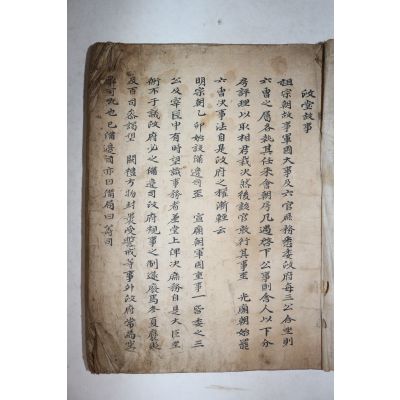 政堂故事
祖宗朝故事軍國大事及六官庶務悉委政府每三公合坐則
六曹之屬各執其任來會朝房凡遇啓下公事則舍人以下分
房評理以取相君裁決然後該官敎行其事至 光廟朝始罷
六曹決事法自是政府之權漸輕云
明宗朝乙卯始設備邊司至 宣廟朝軍國重事一皆委之三
公及宰臣中有時望識事務者差堂上渾次庶務自是大臣坐
衙不于議政府必之備邊司政府規事之制遂廢爲冬夏褒貶
及百司
方物封裹受誓戒等事外政府常爲空
也已備邊司亦曰備局曰籌司